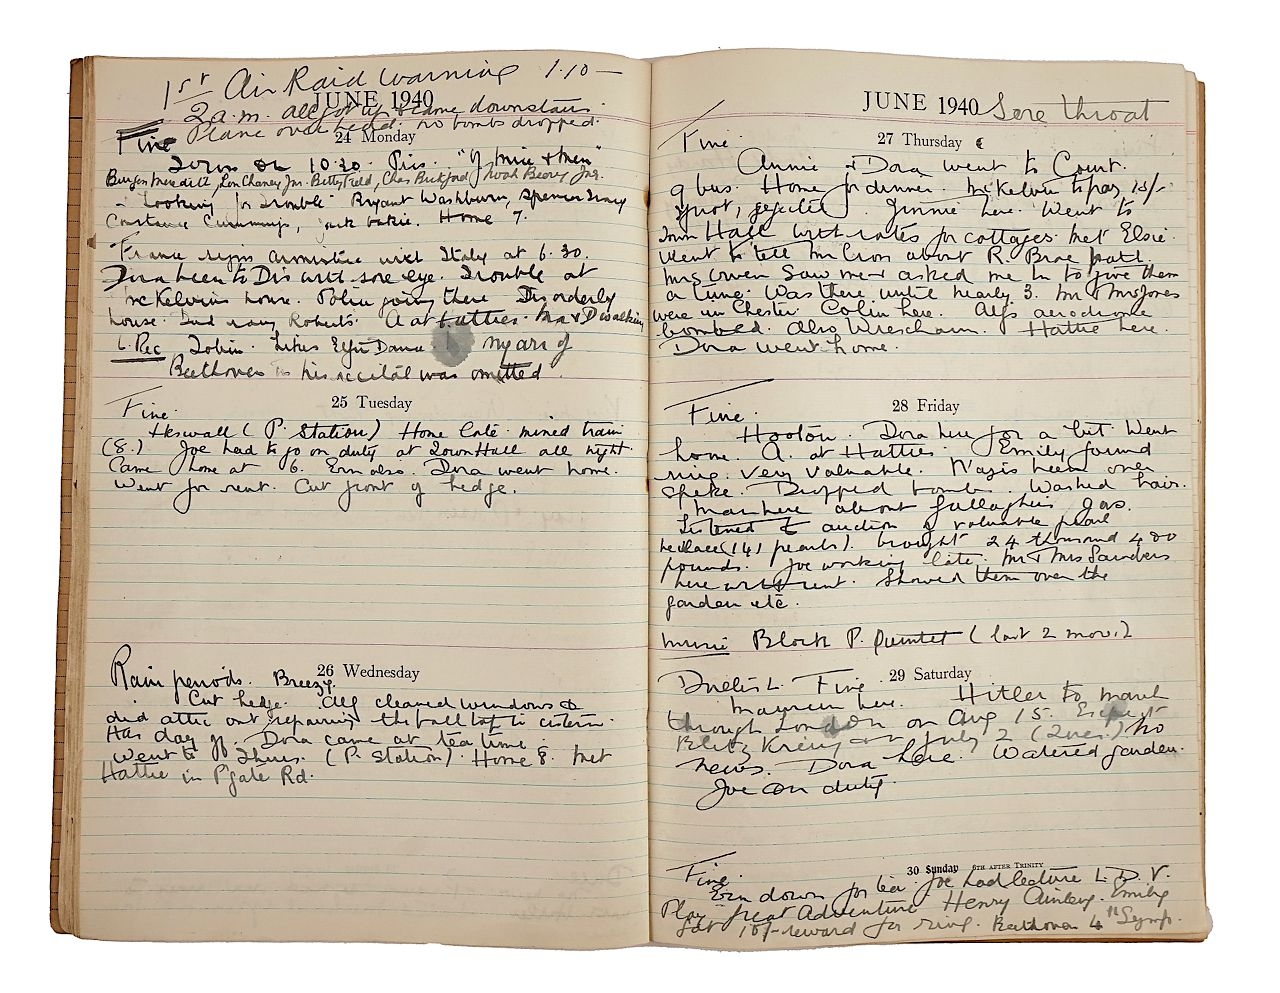 1st Air Raid Warning 1.10 —
JUNE 1940
2 a.m. all got up & came downstairs.
Plane overhead. no bombs dropped.
24 Monday
Fine
Town on 10.30. Pics. "Of mice & men"
Burgess Meredith, Lon Chaney Jnr. Betty Field, Chas Bickford, Noah Beery Jnr.
"Looking for Trouble" Bryant Washburn, Spencer Tracy
Constance Cummings, Jack Oakie. Home 7.
France signs armistice with Italy at 6.30.
Dora been to Dis with sore eye. Trouble at
McKelvins house. Police going there Disorderly
house. Roberts. A at Hatties. Ma & D walking
L. Rec Tobin. Likes Elfin Dance
Beethoven in his recital was omitted.
25 Tuesday
Fine.
Heswall (P. Station) Home late. missed train
(8.) Joe had to go on duty at Town Hall all night.
Came home at 6. Ern also. Dora went home.
Went for rent. Cut front of hedge.
26 Wednesday
Rain periods. Breezy.
Cut hedge. Alf cleaned windows &
did attic out repairing the ball tap in cistern.
Has day off. Dora came at tea time.
Went to (P. Station). Home 8. met
Hattie in Pgate Rd.
JUNE 1940 Sore throat
27 Thursday
Fine
Annie & Dora went to Court.
9 bus. Home for dinner. McKelvin to pay 15/-
Jinnie here. Went to
Town Hall with rates for cottages. met Elsie.
Went to tell Mr Cross about R. Brae
Mrs Owen saw me & asked me in to give them
a tune. Was there until nearly 3. Mr & Mrs Jones
were in Chester. Colin here. Alf's aerodrome
bombed. Also Wrexham. Hattie here.
Dora went home.
28 Friday
Fine.
Hooton. Dora here for a bit. Went
home. A. at Hatties. Emily found
ring. Very valuable. Nazis been over
Speke. Dropped bombs. Washed hair.
Man here about Gallaghers gas.
Listened to auction of valuable pearl
necklace (141 pearls). brought 24 thousand 400
pounds. Joe working late. Mr & Mrs Saunders
here with rent. Showed them over the
garden etc.
Music Block P. Quintet (last 2 mov.)
29 Saturday
Fine
Maureen here. Hitler to march
through London on Aug 15.
Blitz Krieg on July 2 (Tues.) No
news. Dora here. Watered garden.
Joe on duty.
30 Sunday 6TH AFTER TRINITY
Fine.
Ern down for tea. Joe had lecture L.D.V.
Play "Great Adventure" Henry Ainley. Emily
Got 10/- reward for ring. Beethoven 4th Symp.